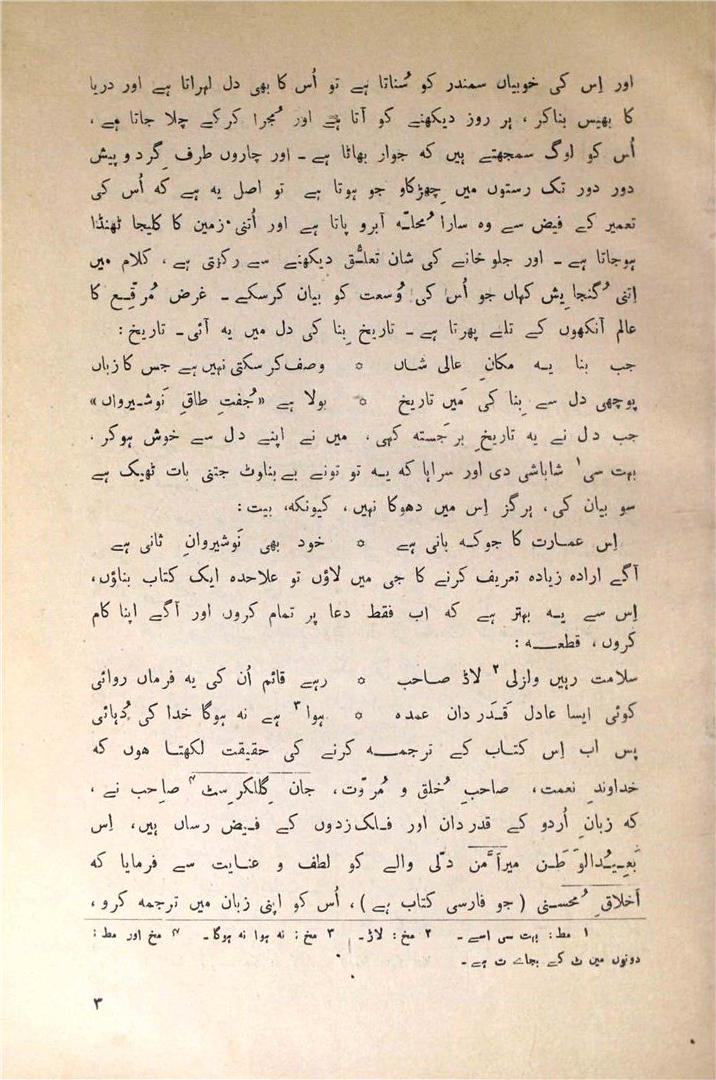 اور اِس کی خوبیاں سمندر کو سُناتا ہے تو اُس کا بھی دل لہراتا ہے اور دریا
کا بھیس بناکر ، ہر روز دیکھنے کو آتا ہے اور مُجرا کرکے چلا جاتا ہے ،
اُس کو لوگ سمجھتے ہیں کہ جوار بھاٹا ہے ۔ اور چاروں طرف گِرد و پیش
دور دور تک رستوں میں چھِڑکاو جو ہوتا ہے تو اصل یہ ہے کہ اُس کی
تعمیر کے فیض سے وہ سارا مُحلّہ آبرو پاتا ہے اور اُتنی زمین کا کلیجا ٹھنڈا
ہوجاتا ہے ۔ اور جلو خانے کی شان تعلُّق دیکھنے سے رکھتی ہے ، کلام میں
اِتنی گُنجایِش کہاں جو اُس کی وُسعت کو بیان کرسکے ۔ غرض مُرقّع کا
عالم آنکھوں کے تلے پھرتا ہے ۔ تاریخ بِنا کی دل میں یہ آئی ۔ تاریخ :
جب بنا یہ مکانِ عالی شاں * وصف کر سکتی نہیں ہے جس کا زباں
پوچھی دل سے بِنا کی مَیں تاریخ * بولا ہے «جُفتِ طاقِ نَوشیرواں»
جب دل نے یہ تاریخِ برجَستہ کہی ، میں نے اپنے دل سے خوش ہوکر ،
بہت سی۱ شاباشی دی اور سراہا کہ یہ تو تونے بے بناوٹ جتنی بات ٹھیک ہے
سو بیان کی ، ہرگز اِس میں دھوکا نہیں ، کیونکہ ، بیت :
اِس عمارت کا جو کہ بانی ہے * خود بھی نَوشیروانِ ثانی ہے
آگے ارادہ زیادہ تعریف کرنے کا جی میں لاؤں تو علاحدہ ایک کتاب بناؤں ،
اِس سے یہ بہتر ہے کہ اب فقط دعا پر تمام کروں اور آگے اپنا کام
کروں ، قطعہ :
سلامت رہیں ولزلی۲ لاڈ صاحب * رہے قائم اُن کی یہ فرماں روائی
کوئی ایسا عادل قَدَر دان عمدہ * ہوا۳ ہے نہ ہوگا خدا کی دُہائی
پس اب اِس کتاب کے ترجمہ کرنے کی حقیقت لکھتا ہوں کہ
خداوندِ نعمت ، صاحبِ خُلق و مُروّت ، جان گِلکرِسٹ۴ صاحب نے ،
کہ زبانِ اُردو کے قدر دان اور فلک زدوں کے فیض رساں ہیں ، اِس
بَعیدُالوَطن میر اَمَّن دلّی والے کو لطف و عنایت سے فرمایا کہ
اَخلاقِ مُحسنی (جو فارسی کتاب ہے) ، اُس کو اپنی زبان میں ترجمہ کرو ،
۱ مط : بہت سی اسے ۔ ۲ مخ : لاڑ ۔ ۳ مخ : نہ ہوا نہ ہوگا ۔ ۴ مخ اور مط :
دونوں میں ٹ کے بجائے ت ہے ۔
۳